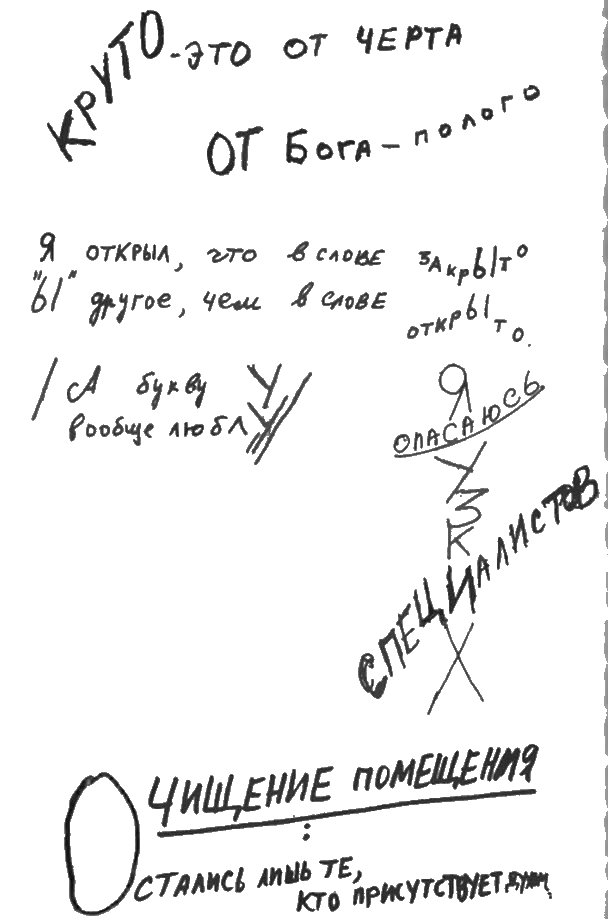 КРУТО - ЭТО ОТ ЧЕРТА
ОТ БОГА - ПОЛОГО
Я ОТКРЫЛ, ЧТО В СЛОВЕ ЗАКРЫТО
"Ы" другое, чем в слове ОТКРЫТО.
/ А букву У
вообще люблУ //
Я
ОПАСАЮСЬ
УЗКИХ
СПЕЦИАЛИСТОВ
ОЧИЩЕНИЕ ПОМЕЩЕНИЯ
:
ОСТАЛИСЬ ЛИШЬ ТЕ,
КТО ПРИСУТСТВУЕТ